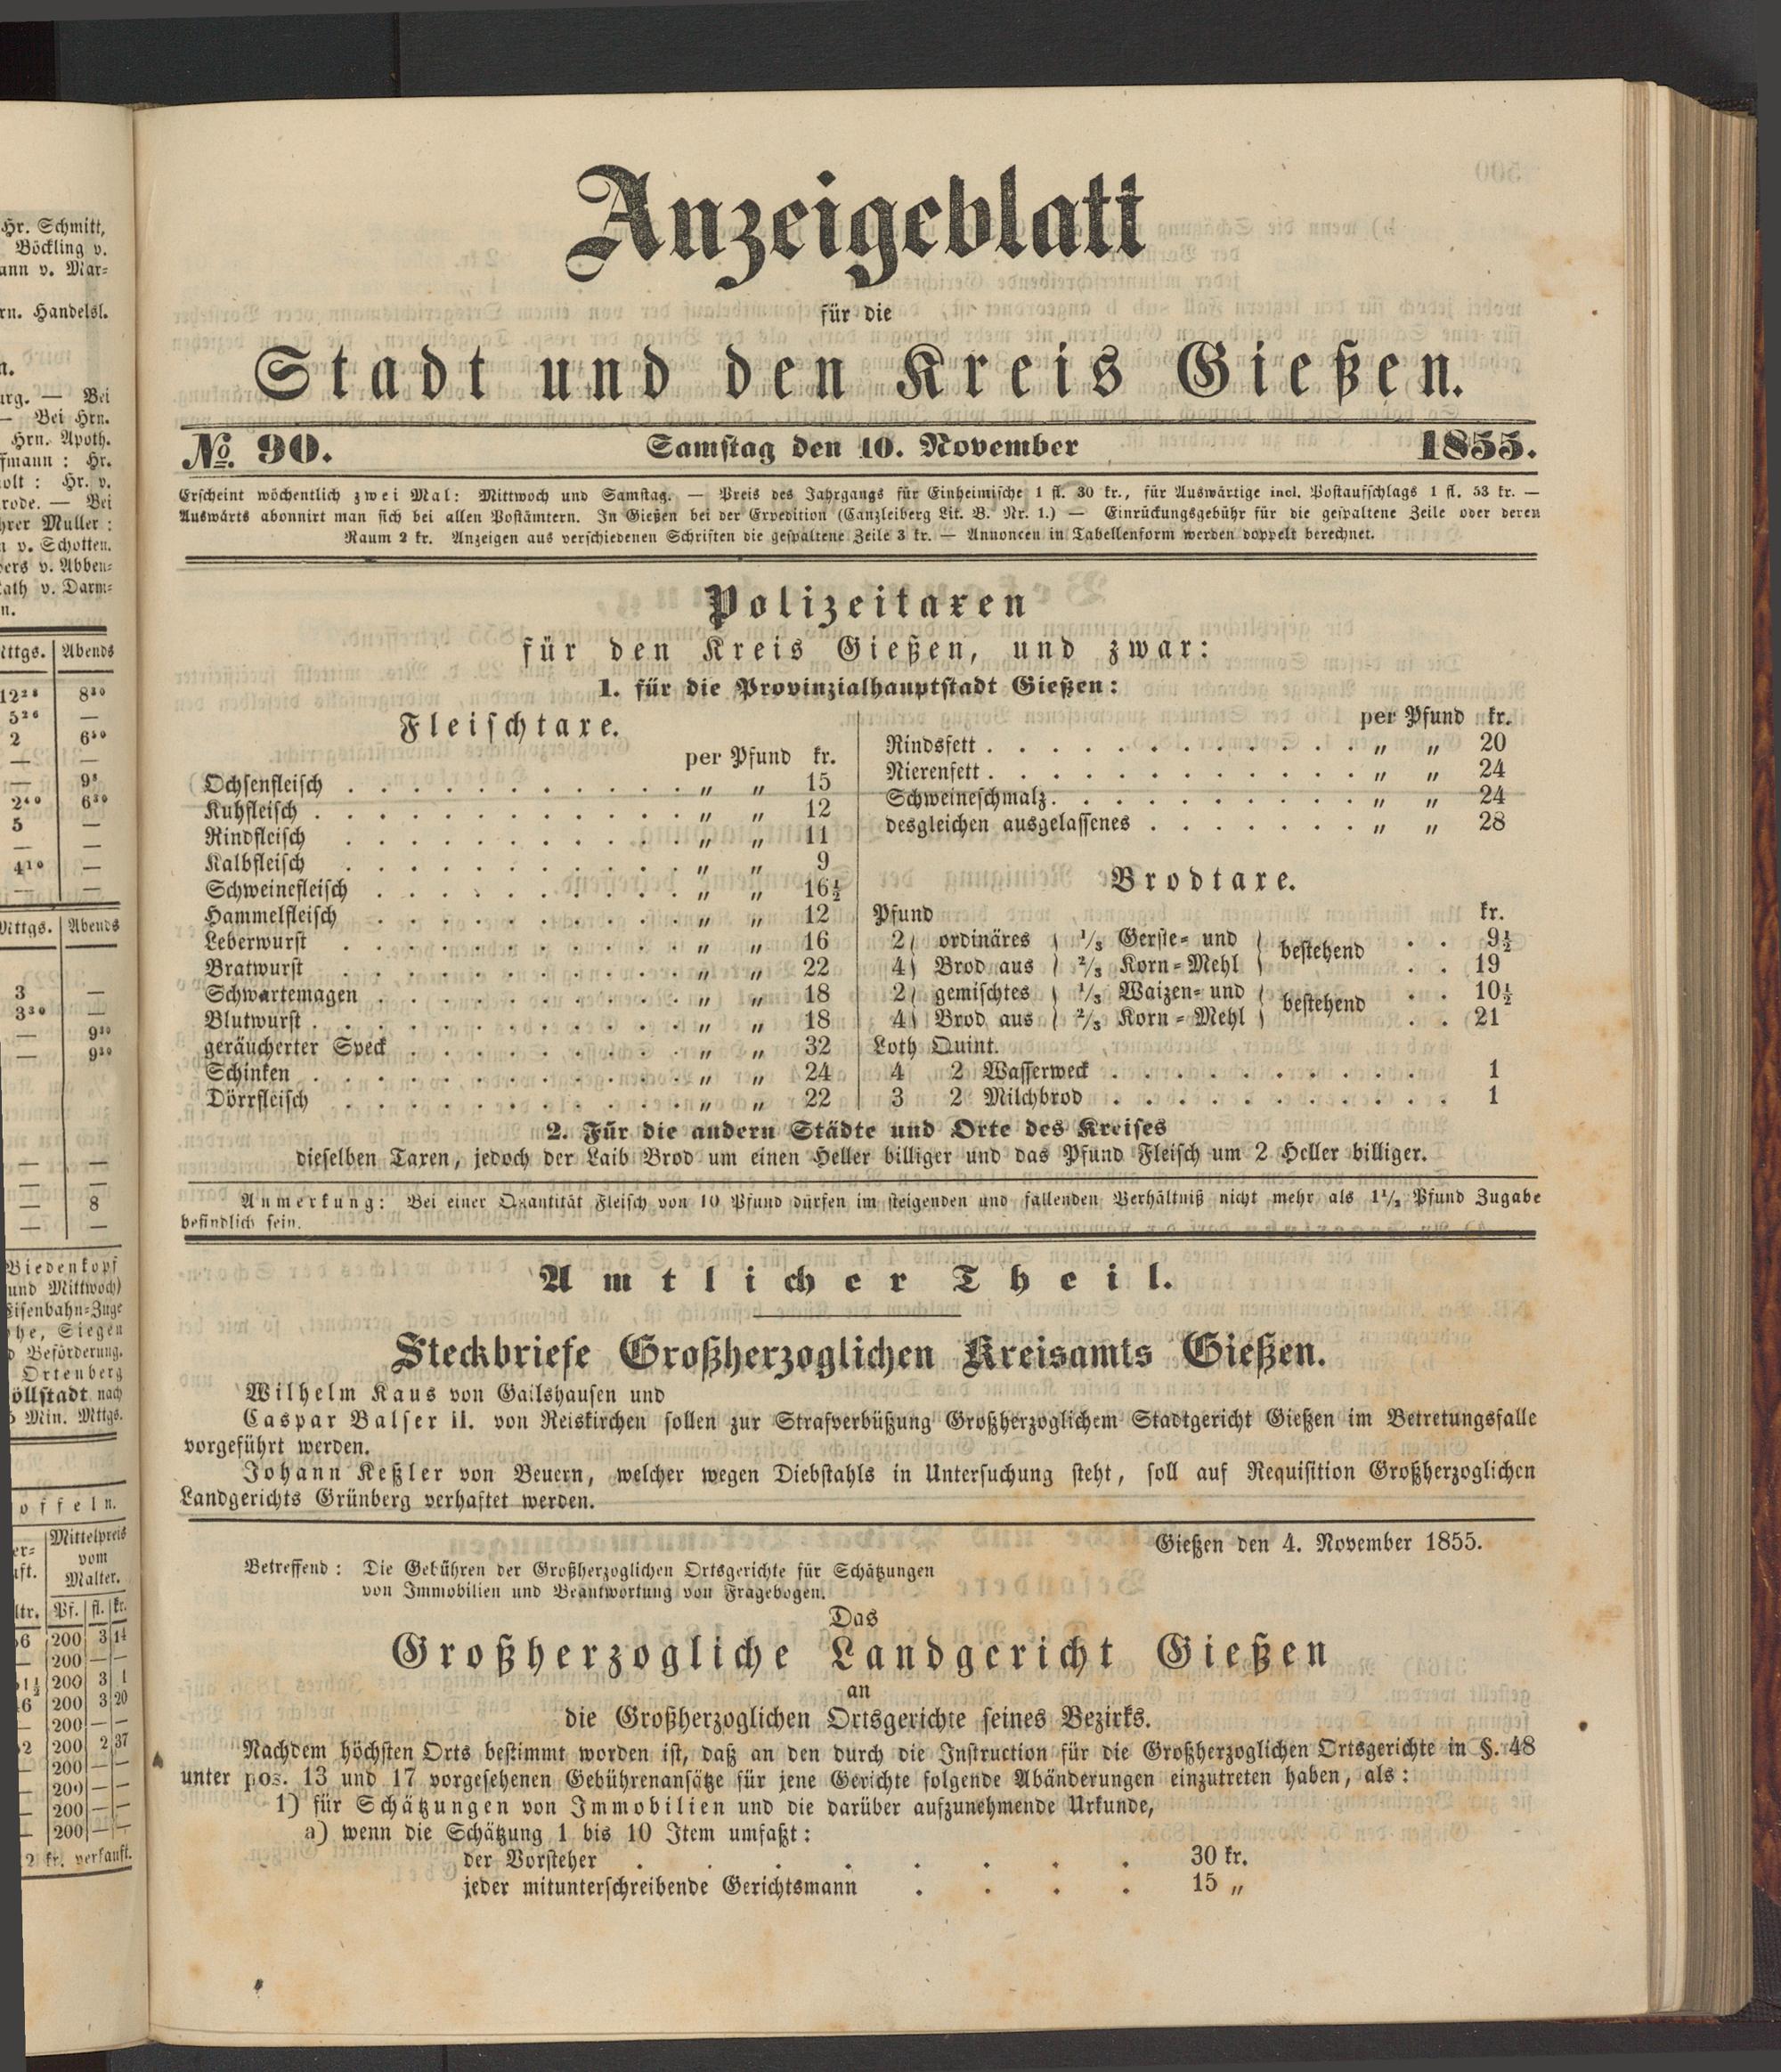 Hr. Schmitt,
Böckling v.
ann v. Mar-
rn. Handelsl.
n.
urg. — Bei
— Bei Hrn.
Hrn. Apoth.
fmann : Hr.
olt : Hr. v.
rode. — Bei
hrer Muller :
n v. Schotten.
bers v. Abben-
ath v. Darm-
n.
ittgs. Abends
12²⁸ 8³⁰
5²⁶ —
2 6⁵⁰
— —
— 9⁵
2⁴⁰ 6³⁰
5 —
— —
4¹⁰ —
— —
Mttgs. Abends
3 —
3³⁰ —
— 9³⁰
— 9³⁰
— —
— —
— 8
— —
Biedenkopf
und Mittwoch)
Eisenbahn-Zuge
he, Siegen
Beförderung.
Ortenberg
öllstadt nach
Min. Mttgs.
offeln.
Mittelpreis
vom
Malter.
ltr. Pf. fl. kr.
6 200 3 14
— 200 — —
1½ 200 3 1
6 200 3 20
— 200 — —
2 200 2 37
— 200 — —
— 200 — —
— 200 — —
— 200 — —
2 kr. verkauft.
Anzeigeblatt
für die
Stadt und den Kreis Gießen.
No. 90. Samstag den 10. November 1855.
Erscheint wöchentlich zwei Mal: Mittwoch und Samstag. — Preis des Jahrgangs für Einheimische 1 fl. 30 kr., für Auswärtige incl. Postaufschlags 1 fl. 53 kr. —
Auswärts abonnirt man sich bei allen Postämtern. In Gießen bei der Expedition (Canzleiberg Lit. B. Nr. 1.) — Einrückungsgebühr für die gespaltene Zeile oder deren
Raum 2 kr. Anzeigen aus verschiedenen Schriften die gespaltene Zeile 3 kr. — Annoncen in Tabellenform werden doppelt berechnet.
Polizeitaxen
für den Kreis Gießen, und zwar:
1. für die Provinzialhauptstadt Gießen:
Fleischtaxe.
per Pfund kr.
Ochsenfleisch . . . . . . . . . . . „ „ 15
Kuhfleisch . . . . . . . . . . . . „ „ 12
Rindfleisch . . . . . . . . . . . „ „ 11
Kalbfleisch . . . . . . . . . . . „ „ 9
Schweinefleisch . . . . . . . . . . „ „ 16½
Hammelfleisch . . . . . . . . . . „ „ 12
Leberwurst . . . . . . . . . . . „ „ 16
Bratwurst . . . . . . . . . . . „ „ 22
Schwartemagen . . . . . . . . . . „ „ 18
Blutwurst . . . . . . . . . . . . „ „ 18
geräucherter Speck . . . . . . . . . „ „ 32
Schinken . . . . . . . . . . . . „ „ 24
Dörrfleisch . . . . . . . . . . . „ „ 22
per Pfund kr.
Rindsfett . . . . . . . . . . . . „ „ 20
Nierenfett . . . . . . . . . . . . „ „ 24
Schweineschmalz. . . . . . . . . . „ „ 24
desgleichen ausgelassenes . . . . . . . „ „ 28
Brodtaxe.
Pfund kr.
2 } ordinäres { ⅓ Gerste- und } bestehend . . 9½
4 } Brod aus { ⅔ Korn-Mehl } . . 19
2 } gemischtes { ⅓ Waizen- und } bestehend . . 10½
4 } Brod aus { ⅔ Korn-Mehl } . . 21
Loth Quint.
4 2 Wasserweck . . . . . . . . . . 1
3 2 Milchbrod . . . . . . . . . . . 1
2. Für die andern Städte und Orte des Kreises
dieselben Taxen, jedoch der Laib Brod um einen Heller billiger und das Pfund Fleisch um 2 Heller billiger.
Anmerkung: Bei einer Quantität Fleisch von 10 Pfund dürfen im steigenden und fallenden Verhältniß nicht mehr als 1½ Pfund Zugabe
befindlich sein.
Amtlicher Theil.
Steckbriefe Großherzoglichen Kreisamts Gießen.
Wilhelm Kaus von Gailshausen und
Caspar Balser II. von Reiskirchen sollen zur Strafverbüßung Großherzoglichem Stadtgericht Gießen im Betretungsfalle
vorgeführt werden.
Johann Keßler von Beuern, welcher wegen Diebstahls in Untersuchung steht, soll auf Requisition Großherzoglichen
Landgerichts Grünberg verhaftet werden.
Gießen den 4. November 1855.
Betreffend : Die Gebühren der Großherzoglichen Ortsgerichte für Schätzungen
von Immobilien und Beantwortung von Fragebogen.
Das
Großherzogliche Landgericht Gießen
an
die Großherzoglichen Ortsgerichte seines Bezirks.
Nachdem höchsten Orts bestimmt worden ist, daß an den durch die Instruction für die Großherzoglichen Ortsgerichte in §. 48
unter pos. 13 und 17 vorgesehenen Gebührenansätze für jene Gerichte folgende Abänderungen einzutreten haben, als :
1) für Schätzungen von Immobilien und die darüber aufzunehmende Urkunde,
a) wenn die Schätzung 1 bis 10 Item umfaßt :
der Vorsteher . . . . . . . . 30 kr.
jeder mitunterschreibende Gerichtsmann . . . . 15 „